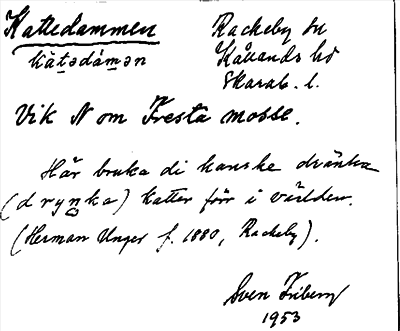 Kattedammen
Rackeby sn
Kållands hd
Skarab. l.
kàtədámən
Vik N om Fresta mosse.
Här bruka di kanske dränka
(drynka) katter förr i världen.
(Herman Unger f. 1880, Rackeby).
Sven Friberg
1953